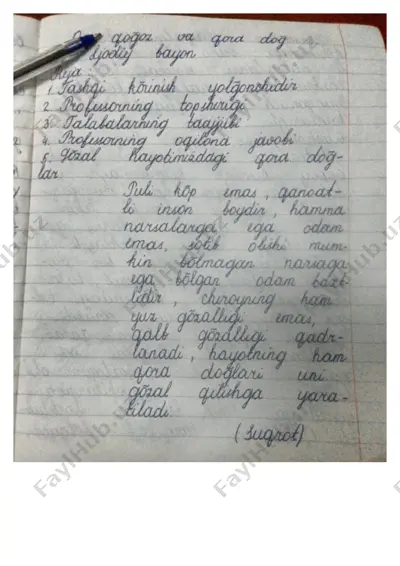 qog'oz va qora dog
Ijodiy bayon
Reja
1. Tashqi ko'rinish yolg'onchidir
2. Professorning topshirig'i
3. Talabalarning taajjubi
4. Professorning oqilona javobi
5. Go'zal hayotimizdagi qora dog'-
lar
Puli ko'p emas, qanoat-
li inson boydir, hamma
narsalarga ega odam
emas, sotib olishi mum-
kin bo'lmagan narsaga
ega bo'lgan odam baxt-
lidir, chiroyning ham
yuz go'zalligi emas,
qalb go'zalligi qadr-
lanadi, hayotning ham
qora dog'lari uni
go'zal qilishga yara-
tiladi.
(Suqrot)
FaylHub.uz
FaylHub.uz
FaylHub.uz